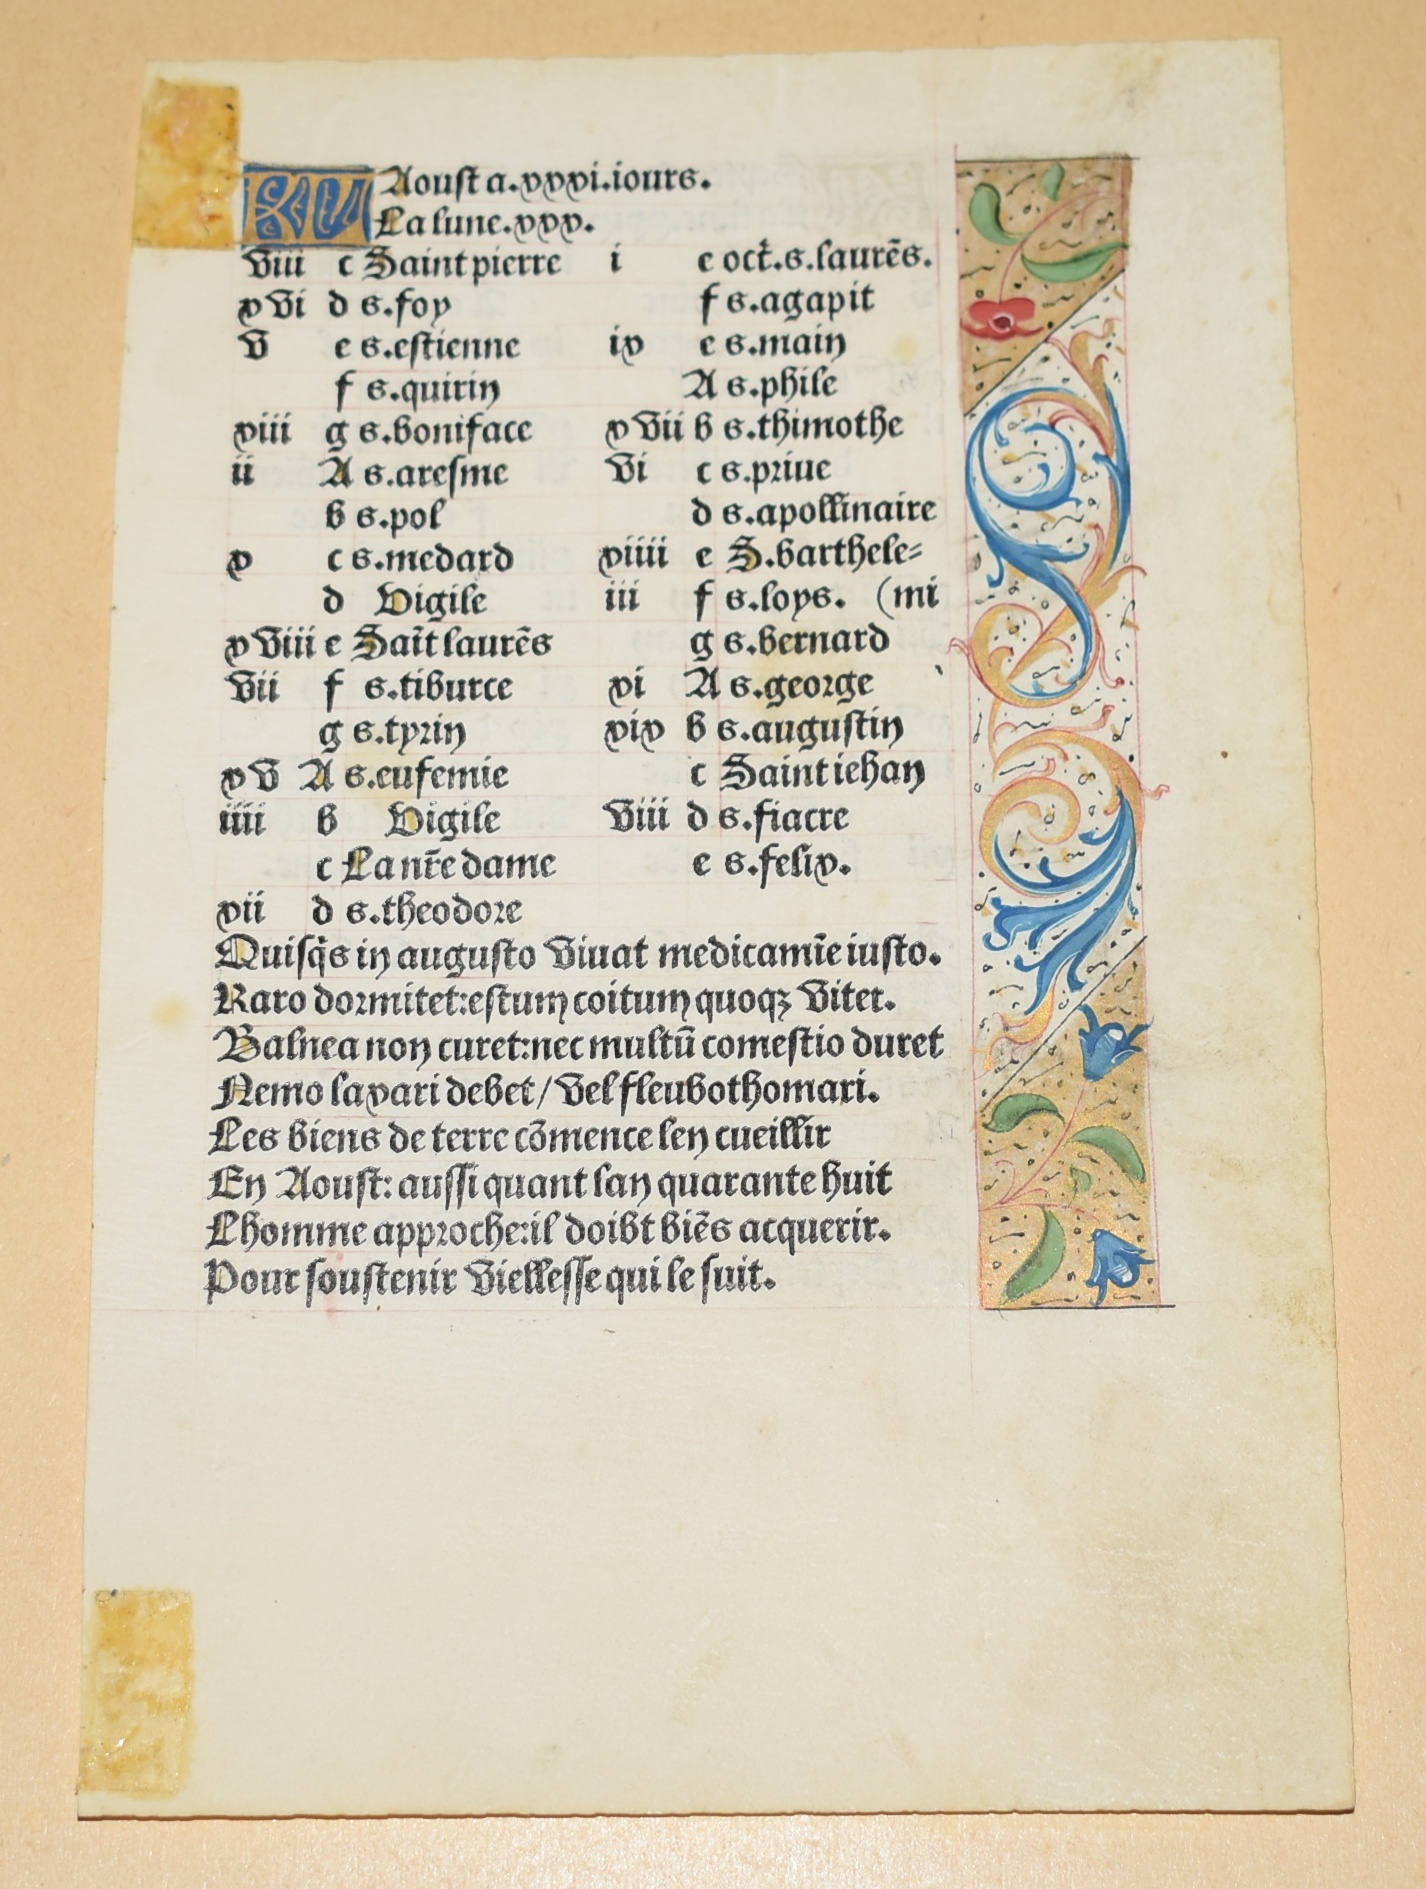 KL Aoust a.xxxi.iours.
La lune.xxx.
viii c Saint pierre
xvi d s.foy
v e s.estienne
f s.quirin
xiii g s.boniface
ii A s.aresme
b s.pol
x c s.medard
d Vigile
xviii e Sait̄ laurēs
vii f s.tiburce
g s.tyrin
xv A s.eufemie
iiii b Vigile
c La nr̄e dame
xii d s.theodore
i e oct̄.s.laurēs.
f s.agapit
ix e s.main
A s.phile
xvii b s.thimothe
vi c s.priue
d s.apollinaire
xiiii e S.barthele-
iii f s.loys. (mi
g s.bernard
xi A s.george
xix b s.augustin
c Saint iehan
viii d s.fiacre
e s.felix.
Quisq̄s in augusto viuat medicamīe iusto.
Raro dormitet:estum coitum quoqꝫ vitet.
Balnea non curet:nec multū comestio duret
Nemo laxari debet/ vel fleubothomari.
Les biens de terre cōmence len cueillir
En Aoust: aussi quant lan quarante huit
Lhomme approche:il doibt biēs acquerir.
Pour soustenir viellesse qui le suit.